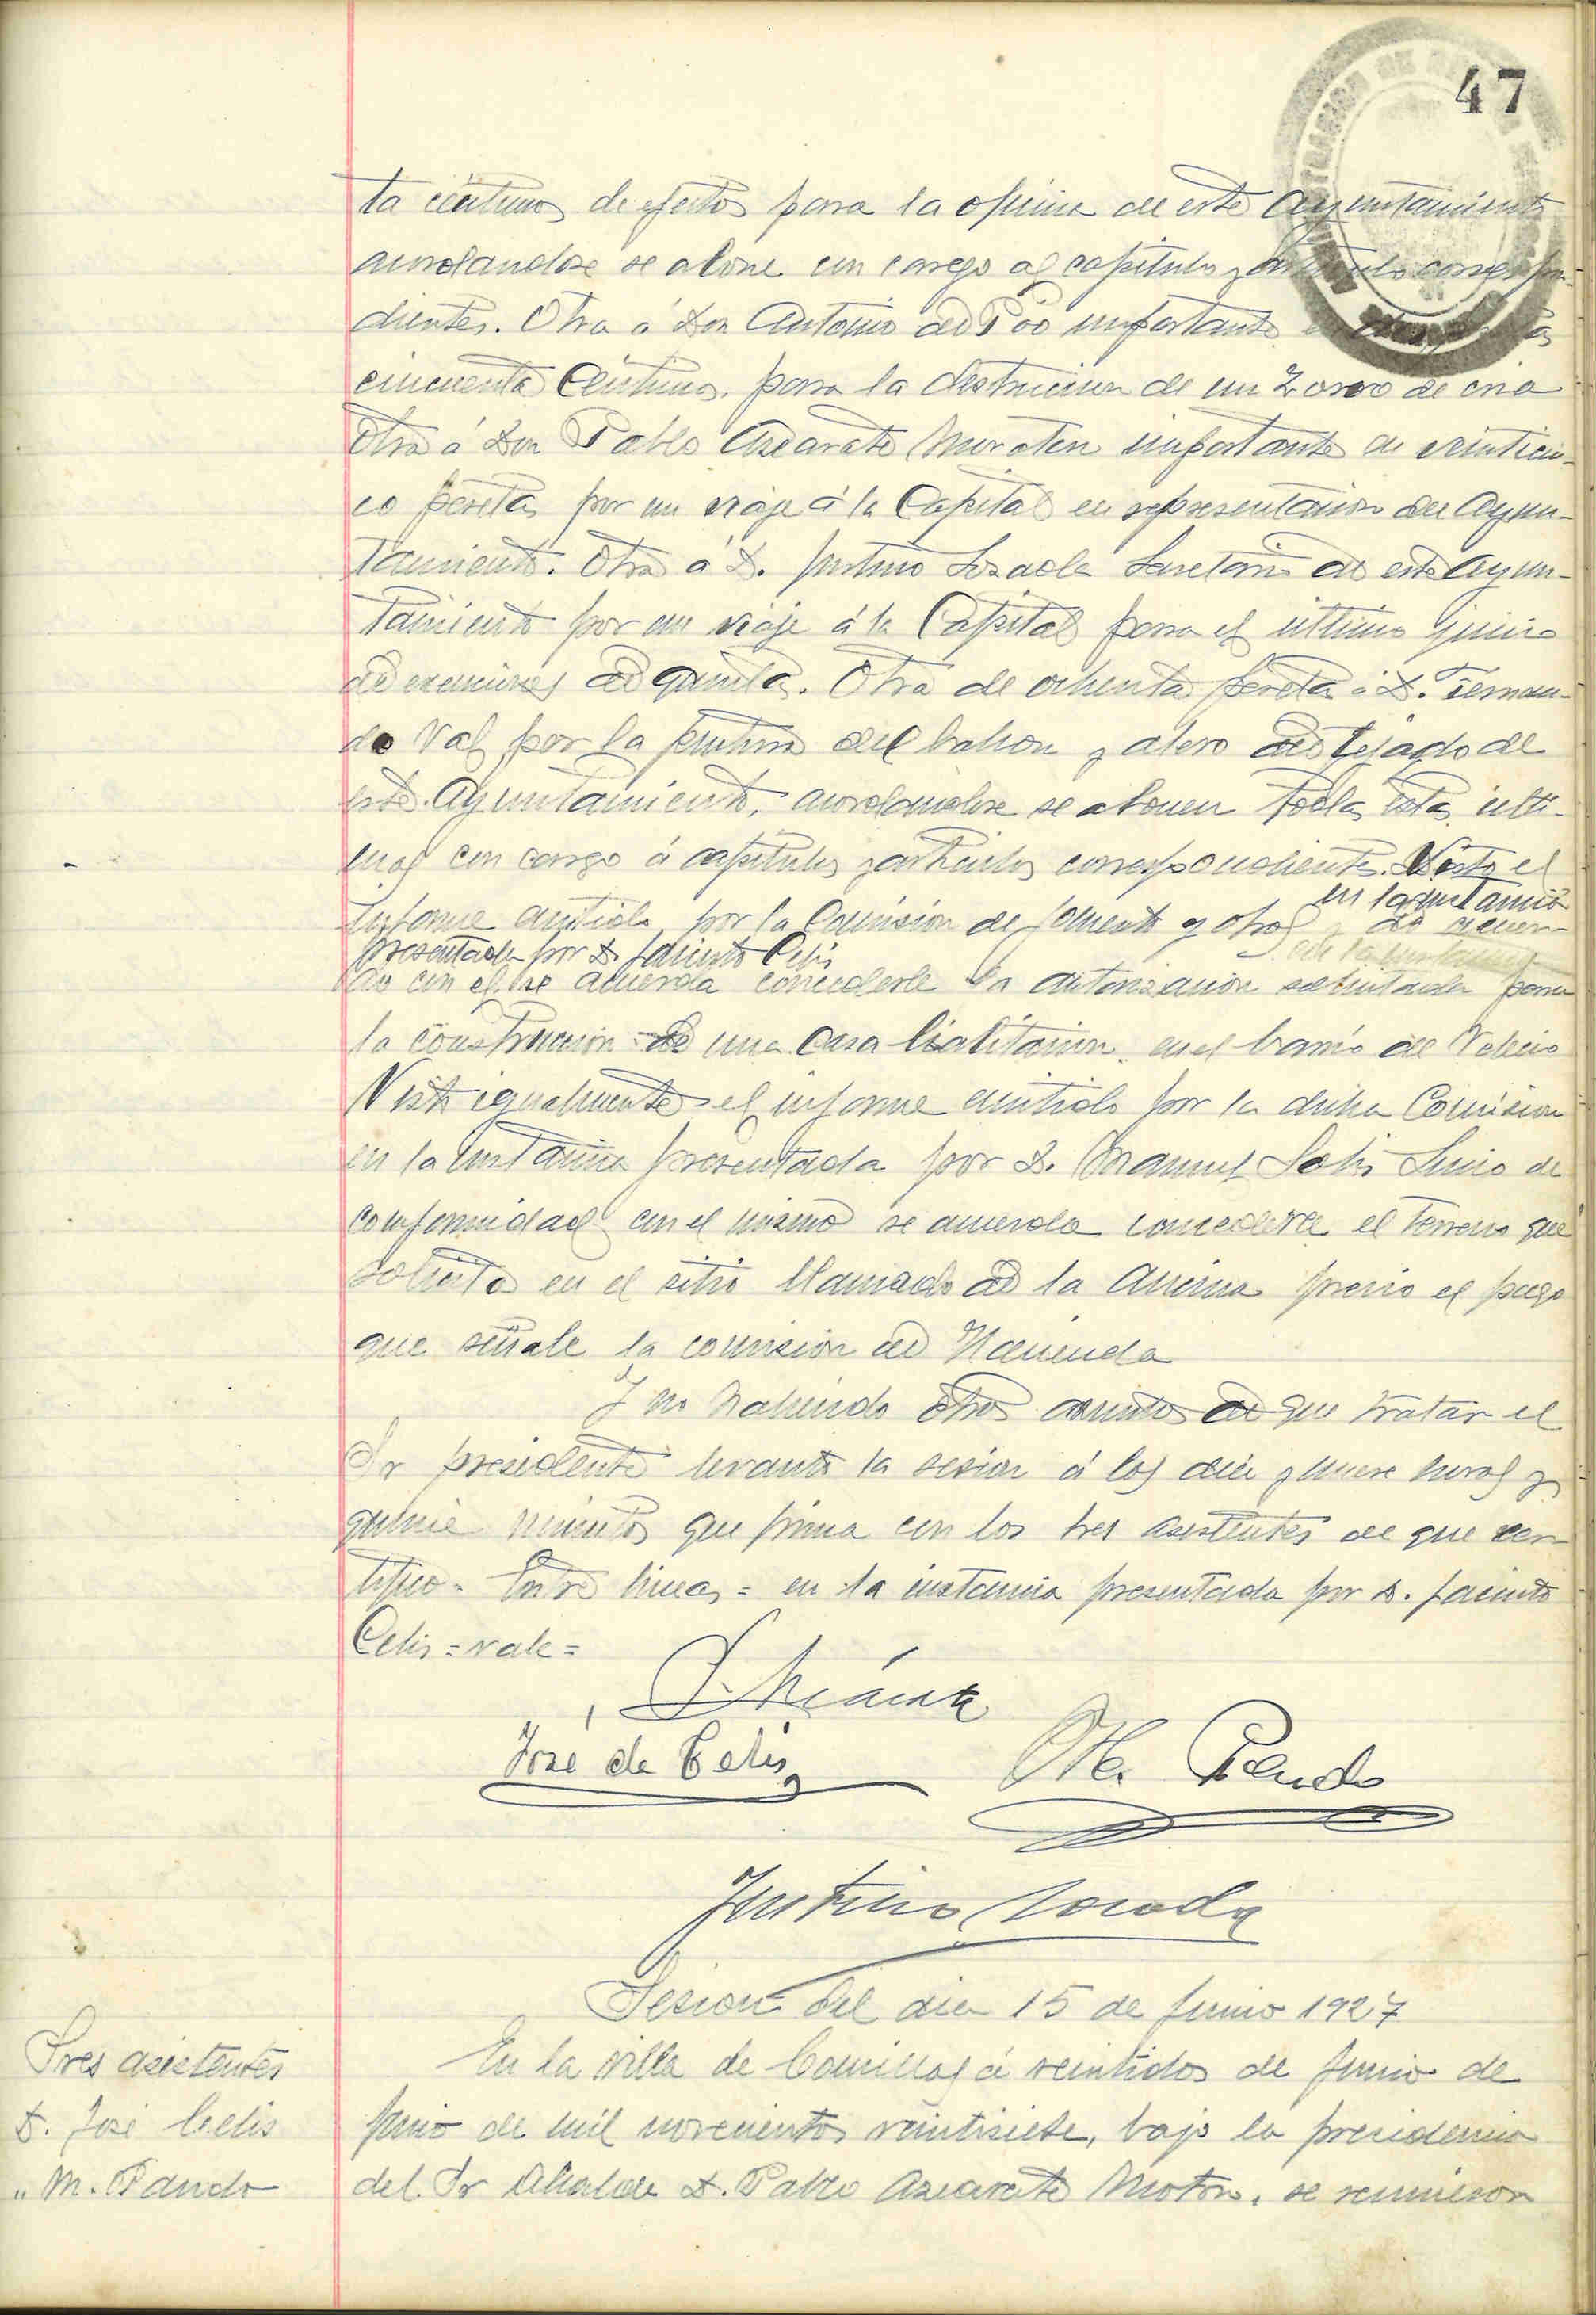 47
ta céntimos de efectos para la oficina de este Ayuntamiento
acordandose se abone con cargo al capitulo y articulo correspon-
dientes. Otra á Don Antonio del Pöo importante
cincuenta Céntimos, para la destruccion de un Zorro de cria
Otra á Don Pablo Azcarate importante de veinticin-
co pesetas por un viaje á la Capital en representacion del Ayun-
tamiento. Otra á D. Justino Losada Secretario de este Ayun-
tamiento por un viaje á la Capital para el ultimo juicio
de exenciones de quintas. Otra de ochenta pesetas á D. Fernan-
do Val por la pintura del balcon y alero del tejado de
este Ayuntamiento, acordandose se abonen todas estas ulti-
mas con cargo á capitulos y articulos correspondientes. Visto el
en la instancia
informe emitido por la Comisión de fomento y obras y de acuer-
presentada por D. Jacinto Celis
do con el se acuerda concederle la autorizacion solicitada para
la construccion de una casa habitacion en el barrio de Velecio
Visto igualmente el informe emitido por la dicha Comision
en la instancia presentada por D. Manuel Solis de
conformidad con el mismo se acuerda concederle el terreno que
solicita en el sitio llamado de la Anima previo el pago
que señale la comision de Hacienda
Y no habiendo otros asuntos de que tratar el
Sr presidente levanto la sesion á las diez y nueve horas y
quince minutos que firma con los tres asistentes de que cer
tifico = Entre lineas = en la instancia presentada por D. Jacinto
Celis = vale =
José de Celis
M. Pando
Justino Losada
Sesion del dia 15 de Junio 1927
Sres asistentes
D. José Celis
" M. Pando
En la villa de Comillas á veintidos de Junio de
Junio de mil novecientos veintisiete, bajo la presidencia
del Sr Alcalde D. Pablo Azcarate Moton, se reunieron